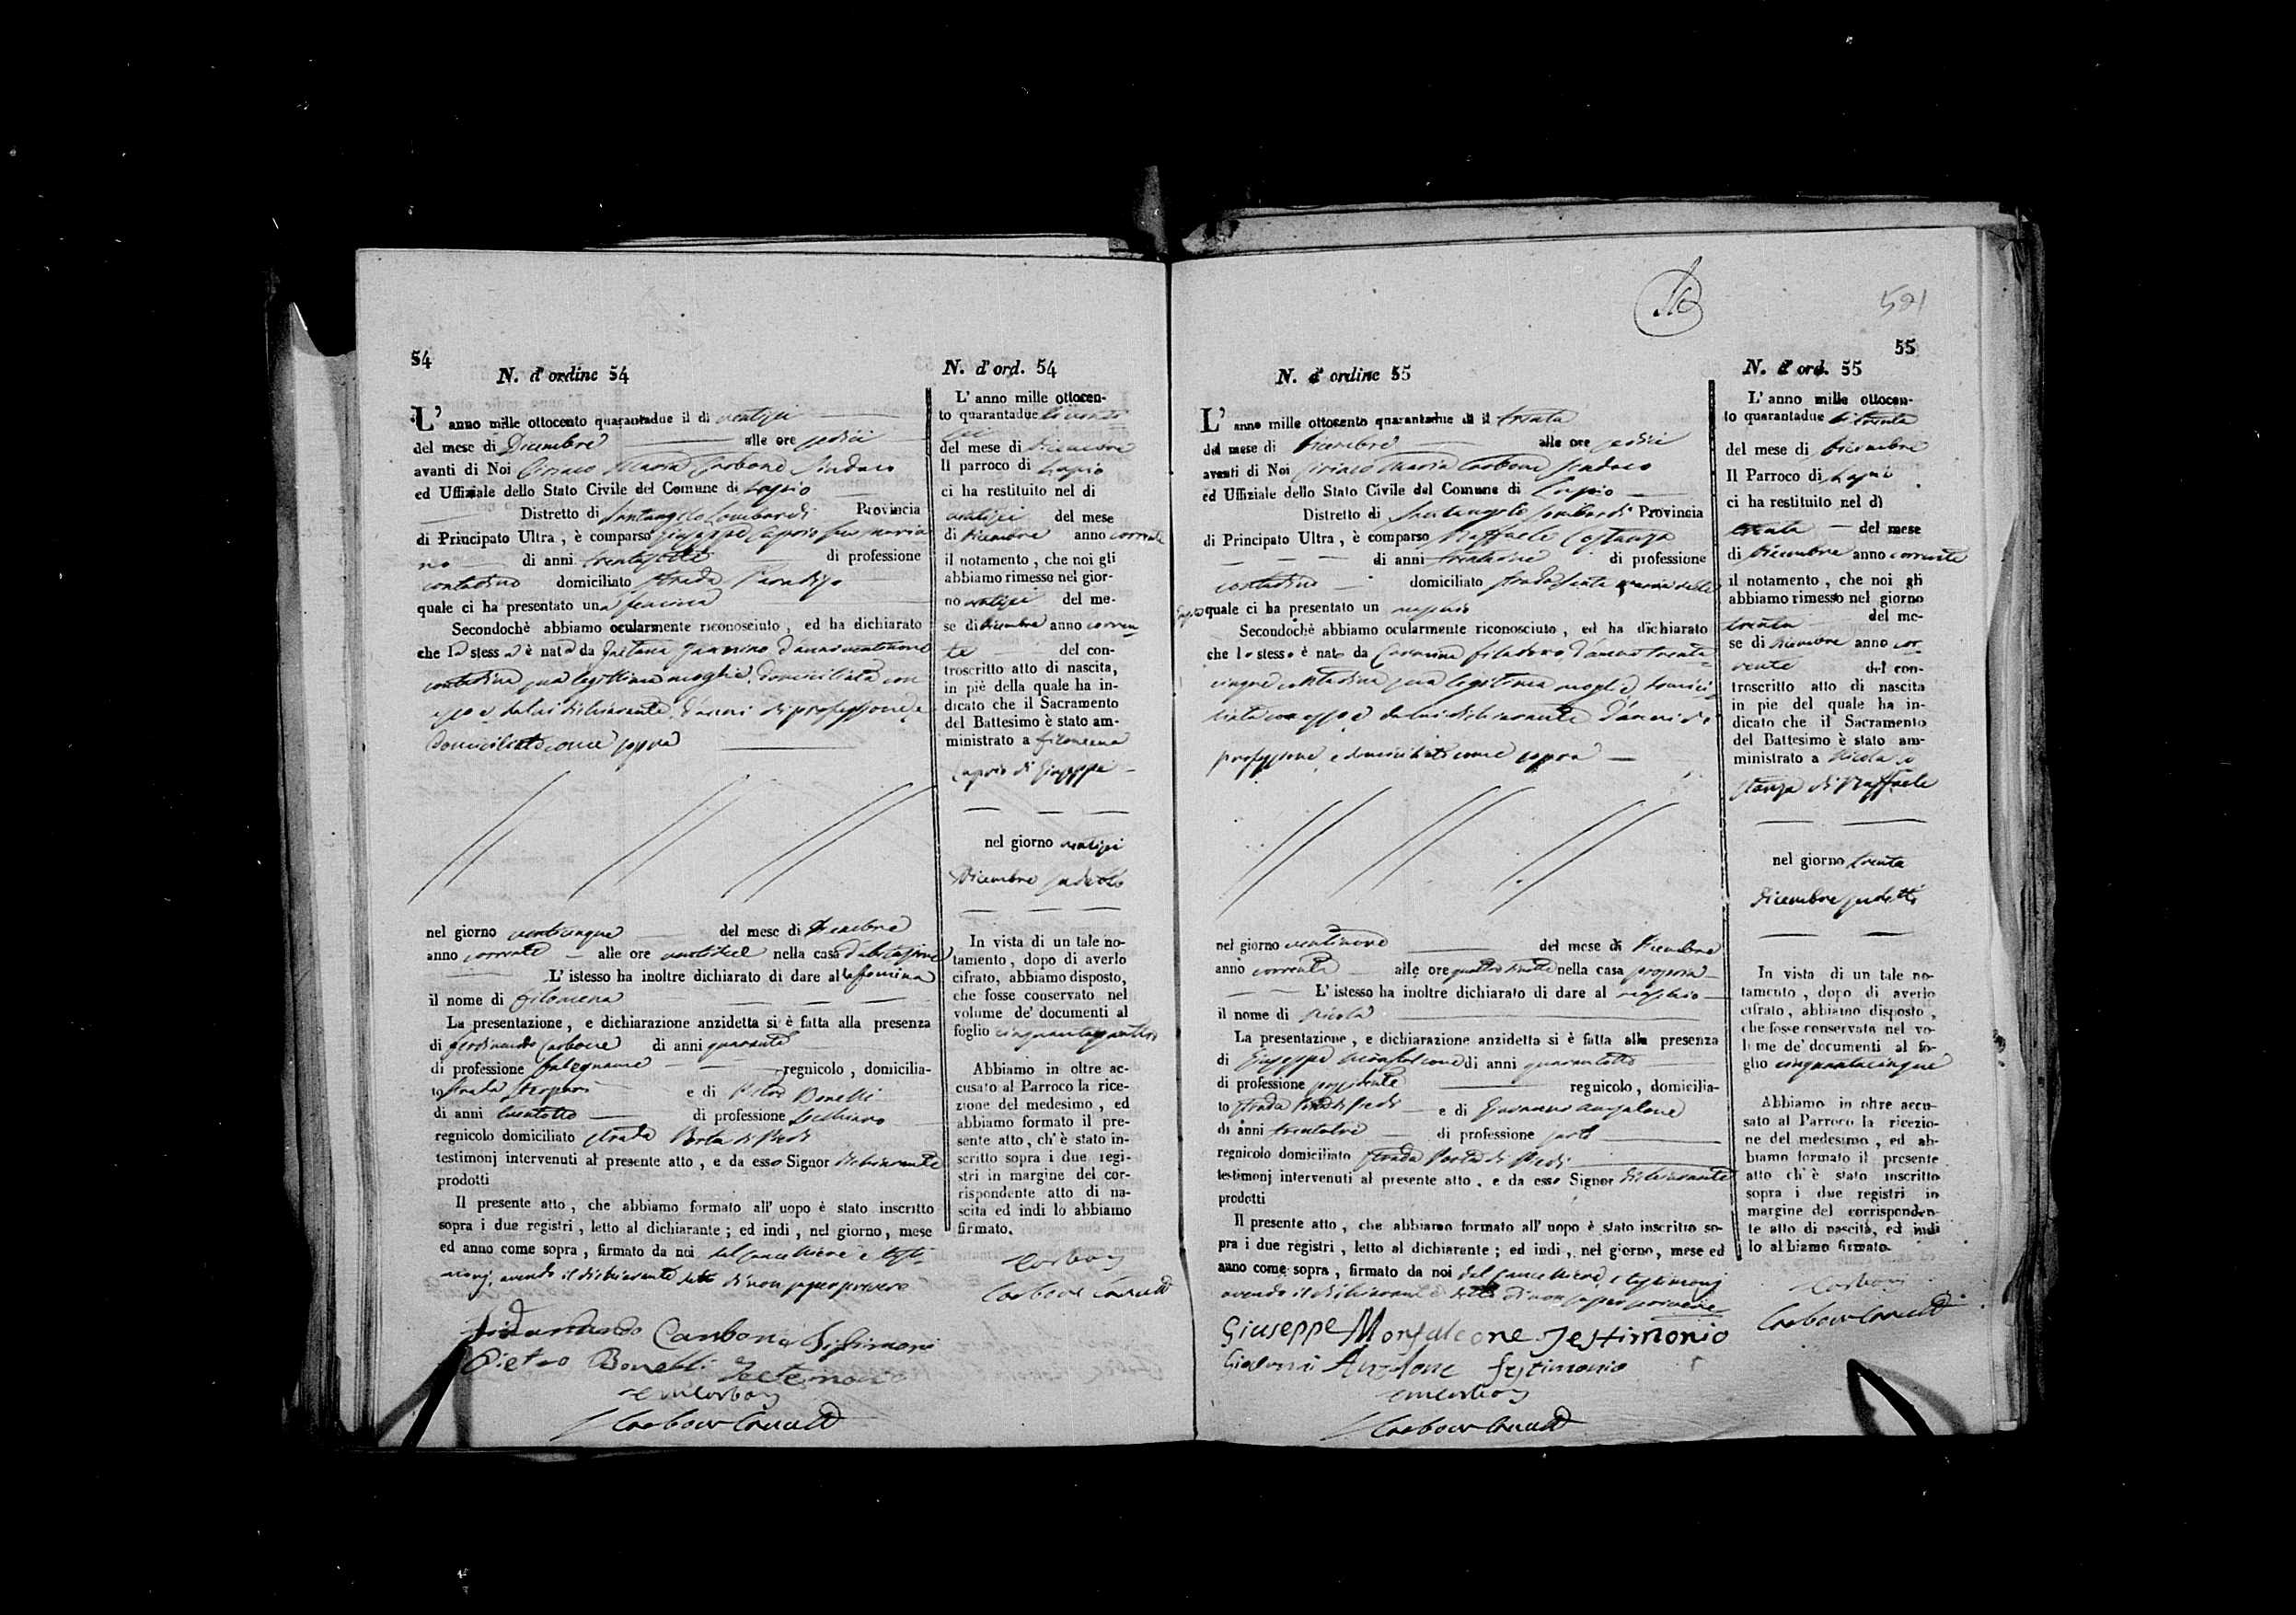 54
N. d'ordine 54
L' anno mille ottocento quarantadue il di ventisei
del mese di Dicembre alle ore sedici
avanti di Noi Ciriaco Maria Carbone Sindaco
ed Uffiziale dello Stato Civile del Comune di Lapio
Distretto di Santangelo Lombardi Provincia
di Principato Ultra, è comparso Giuseppe Caprio fu Maria
no di anni trentasette di professione
contadino domiciliato strada Paradiso
quale ci ha presentato una femina
Secondochè abbiamo ocularmente riconosciuto, ed ha dichiarato
che la stessa è nata da Gaetana d'anni ventinove
contadina sua legittima moglie, domiciliata con
esso e da lui dichiarante d'anni di professione, e
domiciliato come sopra
nel giorno venticinque del mese di Dicembre
anno corrente alle ore nella casa d'abitazione
L' istesso ha inoltre dichiarato di dare alla femina
il nome di Filomena
La presentazione, e dichiarazione anzidetta si è fatta alla presenza
di Ferdinando Carbone di anni quaranta
di professione falegname regnicolo, domicilia-
to strada e di Pietro Bonelli
di anni trentotto di professione
regnicolo domiciliato strada Porta di Piedi
testimonj intervenuti al presente atto, e da esso Signor dichiarante
prodotti
Il presente atto, che abbiamo formato all' uopo è stato inscritto
sopra i due registri, letto al dichiarante; ed indi, nel giorno, mese
ed anno come sopra, firmato da noi dal cancelliere e testi-
monj, avendo il dichiarante detto di non saper scrivere
Ferdinando Carbone
Pietro Bonelli
Carbone
N. d' ord. 54
L' anno mille ottocen-
to quarantadue li ventisei
del mese di Dicembre
Il parroco di Lapio
ci ha restituito nel di
ventisei del mese
di Dicembre anno corrente
il notamento, che noi gli
abbiamo rimesso nel gior-
no ventisei del me-
se di Dicembre anno corren-
te del con-
troscritto atto di nascita,
in piè della quale ha in-
dicato che il Sacramento
del Battesimo è stato am-
ministrato a Filomena
Caprio di Giuseppe
nel giorno ventisei
Dicembre sudetto
In vista di un tale no-
tamento, dopo di averlo
cifrato, abbiamo disposto,
che fosse conservato nel
volume de' documenti al
foglio cinquantaquattro
Abbiamo in oltre ac-
cusato al Parroco la rice-
zione del medesimo, ed
abbiamo formato il pre-
sente atto, ch' è stato in-
scritto sopra i due regi-
stri in margine del cor-
rispondente atto di na-
scita ed indi lo abbiamo
firmato.
Carbone
501
55
N. d' ordine 55
L' anno mille ottocento quarantadue di il trenta
del mese di Dicembre alle ore sedici
avanti di Noi Ciriaco Maria Carbone Sindaco
ed Uffiziale dello Stato Civile del Comune di Lapio
Distretto di Santangelo Lombardi Provincia
di Principato Ultra, è comparso Raffaele Costanza
di anni trentanove di professione
contadino domiciliato strada Santa Maria della
quale ci ha presentato un maschio
Secondochè abbiamo ocularmente riconosciuto, ed ha dichiarato
che lo stesso è nato da Carmina Filadoro d'anni trenta
cinque contadina sua legitima moglie, domici-
liata con esso e da lui dichiarante d'anni di
professione e domiciliato come sopra
nel giorno ventinove del mese di Dicembre
anno corrente alle ore nella casa propria
L' istesso ha inoltre dichiarato di dare al maschio
il nome di Nicola
La presentazione, e dichiarazione anzidetta si è fatta alla presenza
di Giuseppe Monfalcone di anni quarantotto
di professione possidente regnicolo, domicilia-
to strada Porta di Piedi e di Giovanni Anzalone
di anni di professione sarto
regnicolo domiciliato strada Porta di Piedi
testimonj intervenuti al presente atto, e da esso Signor dichiarante
prodotti
Il presente atto, che abbiamo formato all' uopo è stato inscritto so-
pra i due registri, letto al dichiarante; ed indi, nel giorno, mese ed
anno come sopra, firmato da noi dal cancelliere, e testimonj
avendo il dichiarante detto di non saper scrivere
Giuseppe Monfalcone Testimonio
Giovanni Anzalone Testimonio
Carbone
N. d' ord. 55
L' anno mille ottocen-
to quarantadue li trenta
del mese di Dicembre
Il Parroco di Lapio
ci ha restituito nel dì
trenta del mese
di Dicembre anno corrente
il notamento, che noi gli
abbiamo rimesso nel giorno
trenta del me-
se di Dicembre anno cor-
rente del con-
troscritto atto di nascita
in pie del quale ha in-
dicato che il Sacramento
del Battesimo è stato am-
ministrato a Nicola Co
stanza di Raffaele
nel giorno trenta
Dicembre sudetto
In vista di un tale no-
tamento, dopo di averlo
cifrato, abbiamo disposto,
che fosse conservato nel vo-
lume de' documenti al fo-
glio cinquantacinque
Abbiamo in oltre accu-
sato al Parroco la ricezio-
ne del medesimo, ed ab-
biamo formato il presente
atto ch' è stato inscritto
sopra i due registri in
margine del corrisponden-
te atto di nascita, ed indi
lo abbiamo firmato.
Carbone